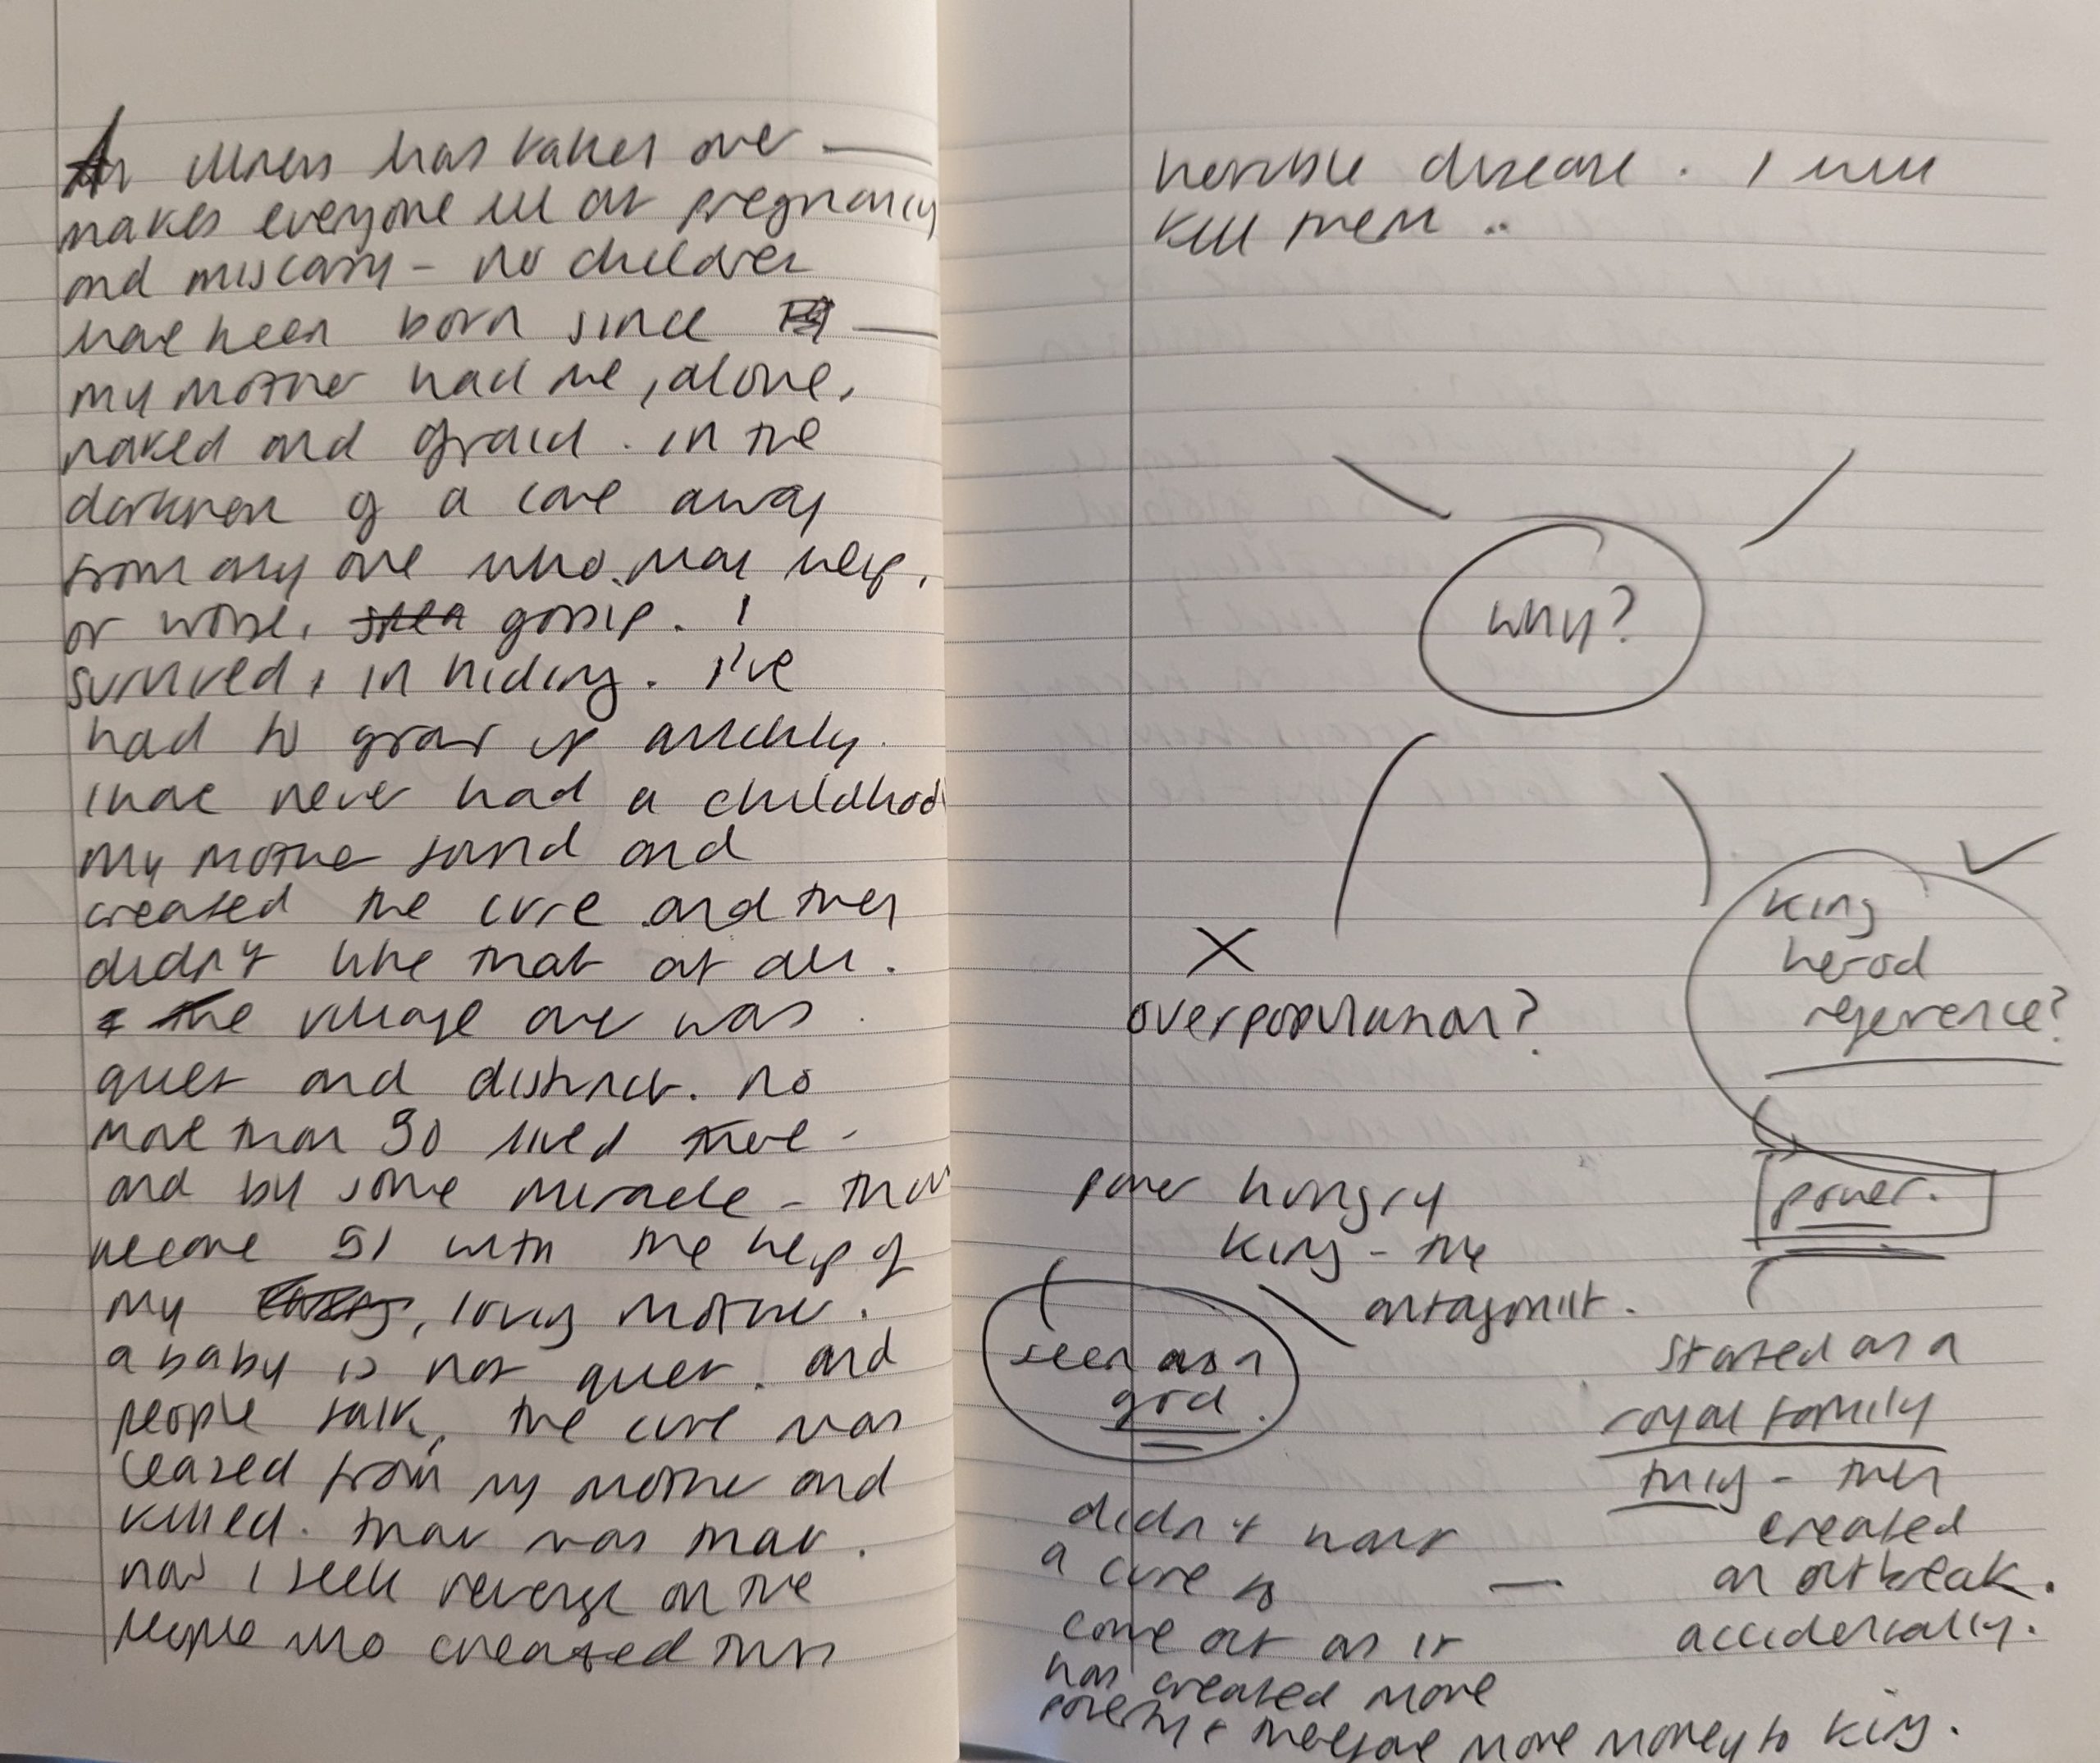 An illness has taken over —
makes everyone ill at pregnancy
and miscarry - no children
have been born since —
my mother had me, alone,
naked and afraid. in the
darkness of a cave away
from any one who may help,
or worse, gossip. I
survived, in hiding. I've
had to grow up quickly.
I have never had a childhood
my mother found and
created the cure and they
didn't like that at all.
the village over was
quiet and distinct. no
more than 50 lived there -
and by some miracle - that
became 51 with the help of
my, loving mother.
a baby is not quiet. and
people talk, the cure was
ceazed from my mother and
killed. that was that.
now I seek revenge on the
people who created this
horrible disease. I will
kill them ..
why?
X
overpopulation?
king
herod
reference?
power.
power hungry
king - the
antagonist.
seen as a
god.
started as a
royal family
thing - they
created
an outbreak.
accidentally.
didn't want
a cure to
come out as it
has created more
poverty & therefore more money to king.